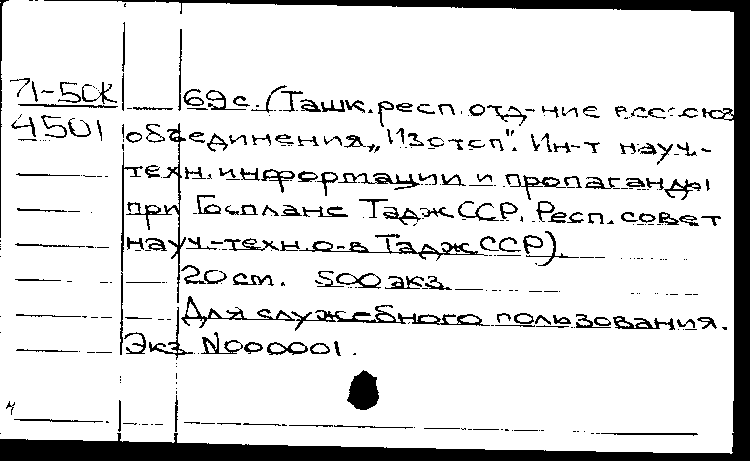 71-50К 69 с. (Ташк. респ. отд-ние всесоюз
4501 объединения „Изотоп". Ин-т науч.-
техн. информации и пропаганды
при Госплане ТаджССР. Респ. совет
науч.-техн. о-в ТаджССР).
20 см. 500 экз.
Для служебного пользования.
Экз N000001.